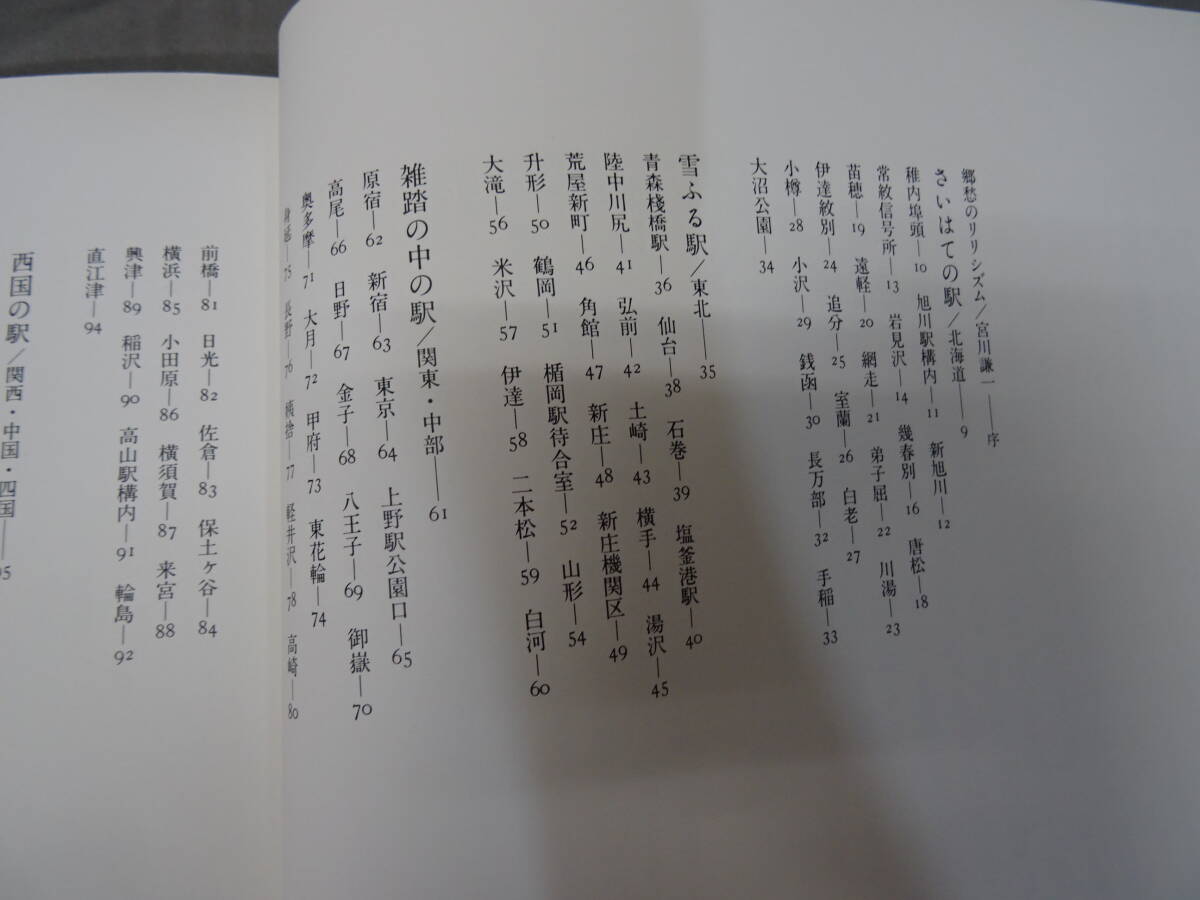 郷愁のリリシズム／宮川謙一——序
さいはての駅／北海道——9
稚内埠頭—10 旭川駅構内—11 新旭川—12
常紋信号所—13 岩見沢—14 幾春別—16 唐松—18
苗穂—19 遠軽—20 網走—21 弟子屈—22 川湯—23
伊達紋別—24 追分—25 室蘭—26 白老—27
小樽—28 小沢—29 銭函—30 長万部—32 手稲—33
大沼公園—34
雪ふる駅／東北——35
青森棧橋駅—36 仙台—38 石巻—39 塩釜港駅—40
陸中川尻—41 弘前—42 土崎—43 横手—44 湯沢—45
荒屋新町—46 角館—47 新庄—48 新庄機関区—49
升形—50 鶴岡—51 楯岡駅待合室—52 山形—54
大滝—56 米沢—57 伊達—58 二本松—59 白河—60
雑踏の中の駅／関東・中部——61
原宿—62 新宿—63 東京—64 上野駅公園口—65
高尾—66 日野—67 金子—68 八王子—69 御嶽—70
奥多摩—71 大月—72 甲府—73 東花輪—74
身延—75 長野—76 姨捨—77 軽井沢—78 高崎—80
前橋—81 日光—82 佐倉—83 保土ヶ谷—84
横浜—85 小田原—86 横須賀—87 来宮—88
興津—89 稲沢—90 高山駅構内—91 輪島—92
直江津—94
西国の駅／関西・中国・四国——95